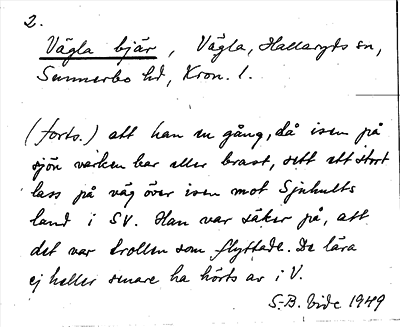 2.
Vägla bjär, Vägla, Hallaryds sn,
Sunnerbo hd, Kron. l.
(forts.) att han en gång, då isen på
sjön varken bar eller brast, sett ett stort
lass på väg över isen mot Sjuhults
land i SV. Han var säker på, att
det var trollen som flyttade. De lära
ej heller senare ha hörts av i V.
S.-B. Vide 1949